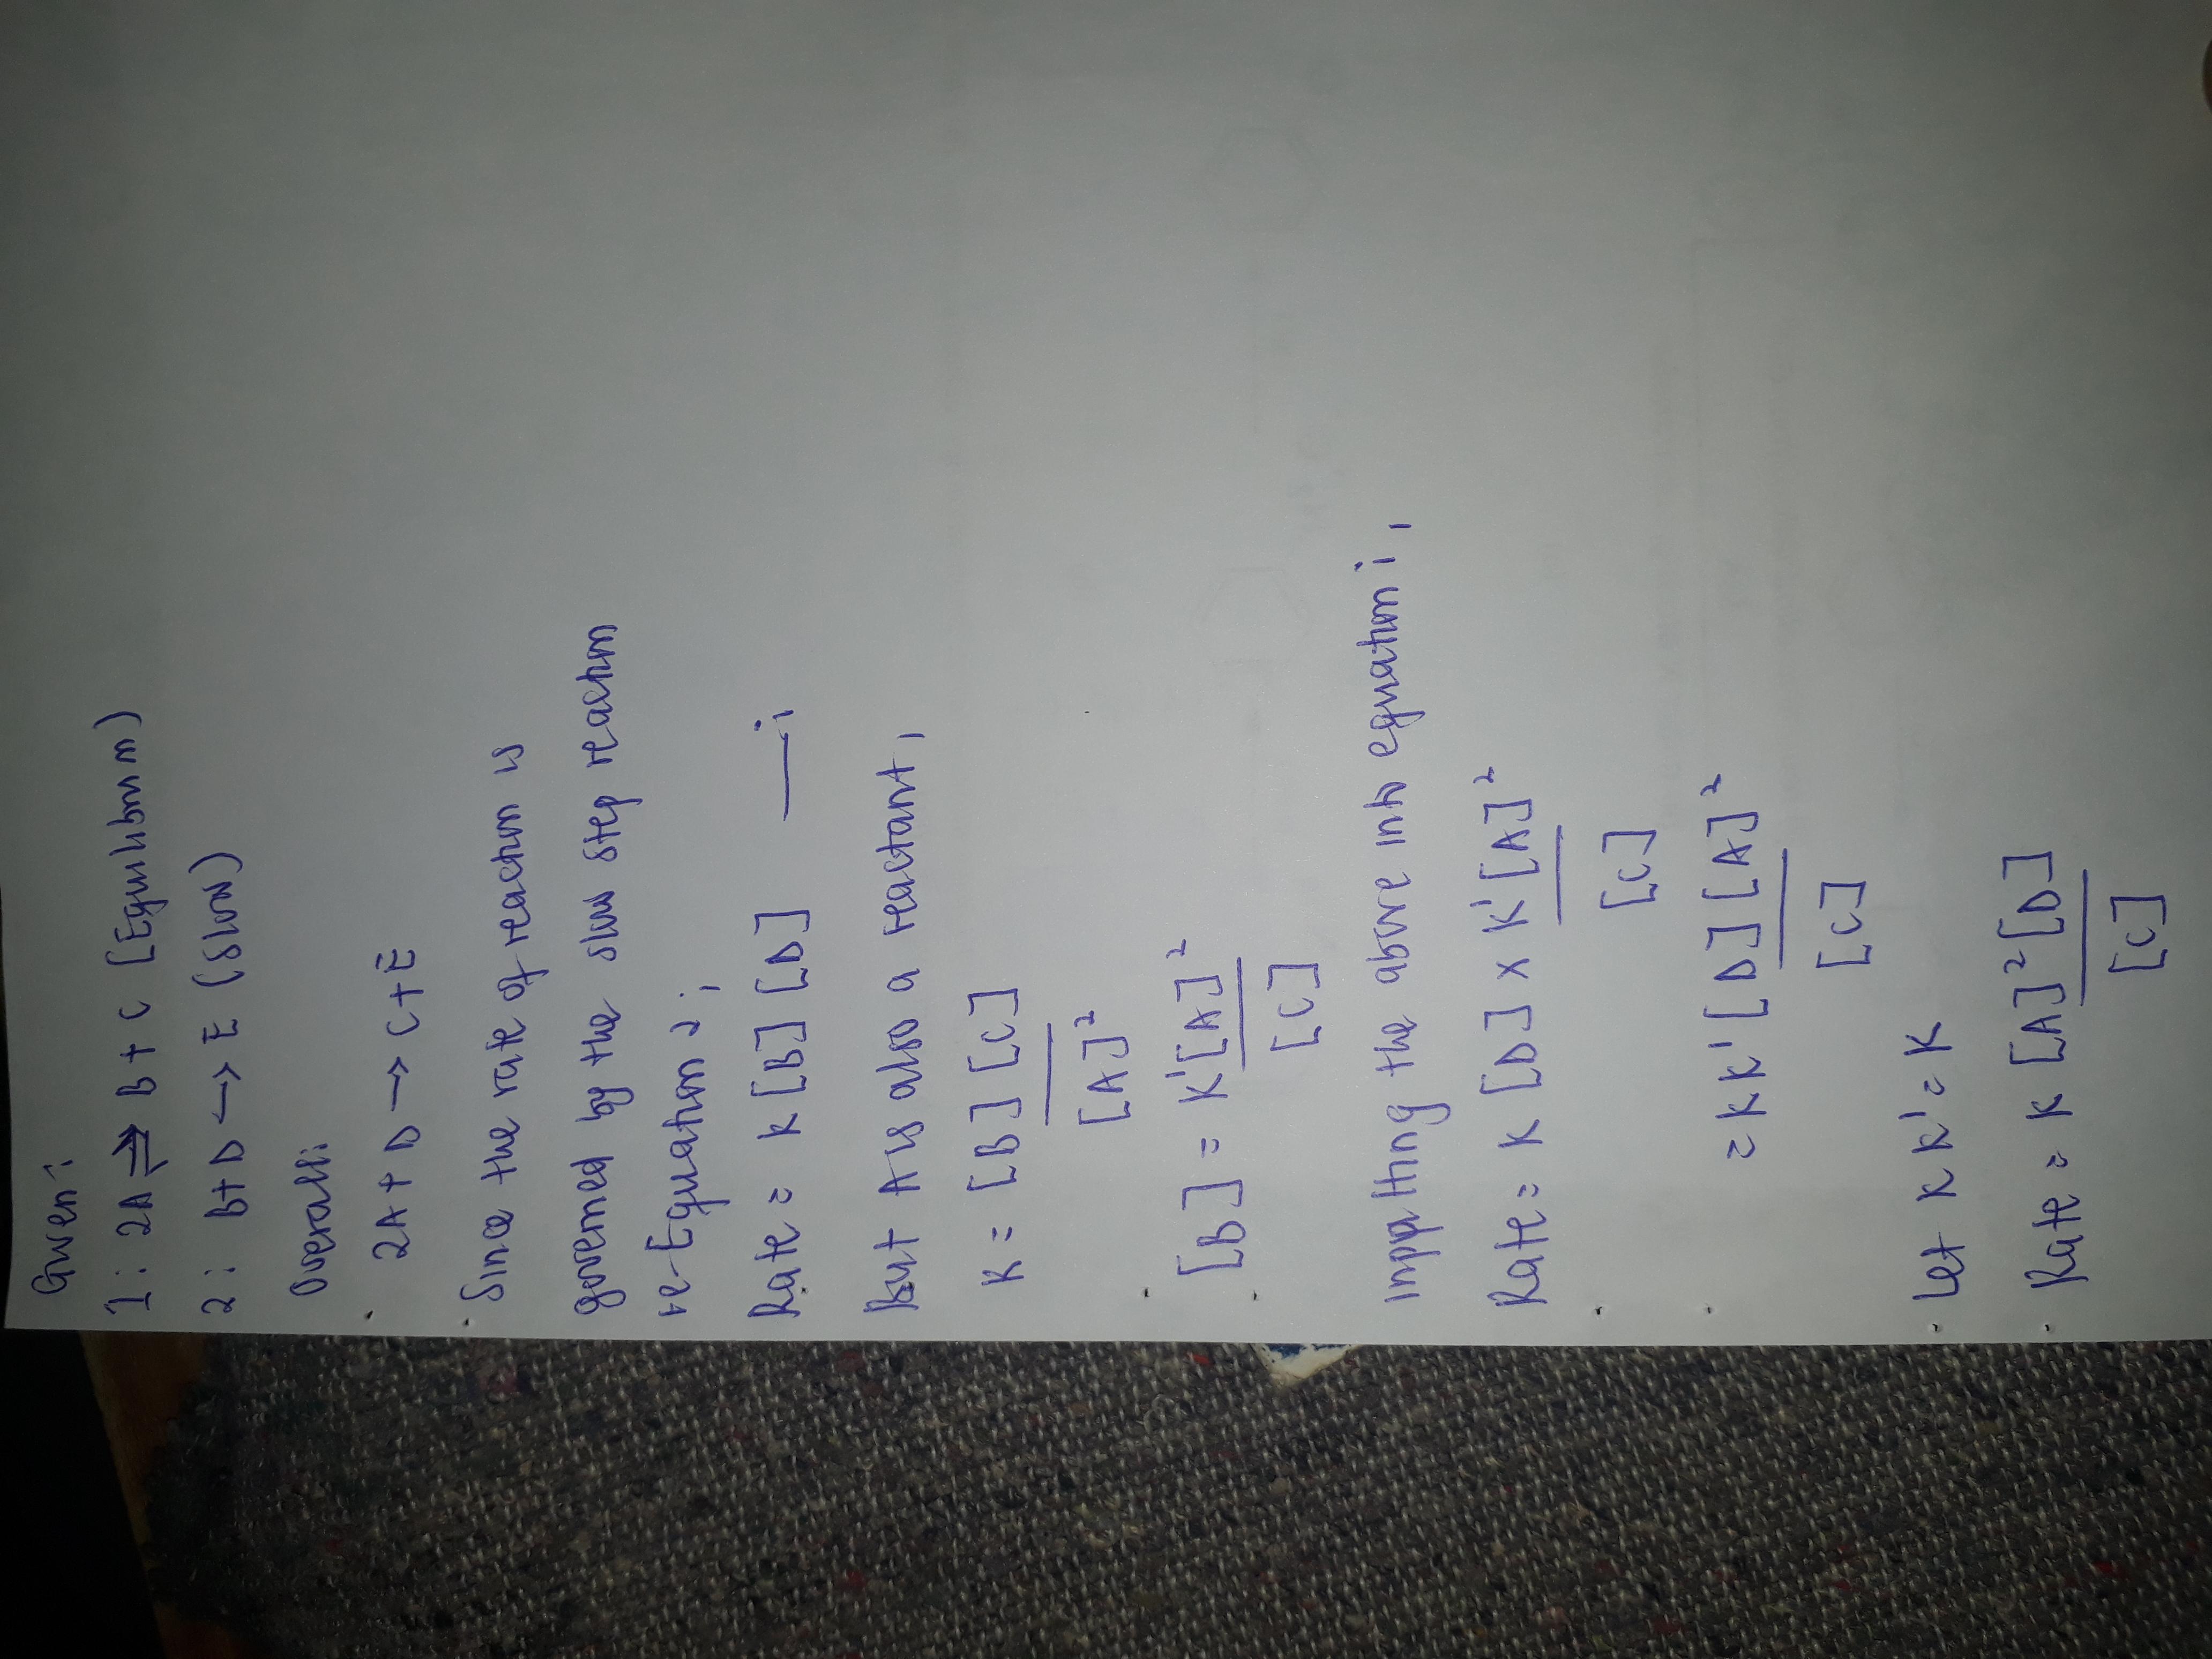 Given:
1: 2A ⇌ B + C [Equilibrium)
2: B+D → E (Slow)
Overall:
2A + D → C+E
Since the rate of reaction is
governed by the slow step reaction
ie-Equation 2;
Rate = k [B] [D] —— i
But A is also a reactant,
K = [B] [C]
[A]²
[B] = K'[A]²
[C]
the above into equation i,
Rate = k [D] x K'[A]²
[C]
= kk' [D] [A]²
[C]
Let kk' = K
Rate = K [A]² [D]
[C]